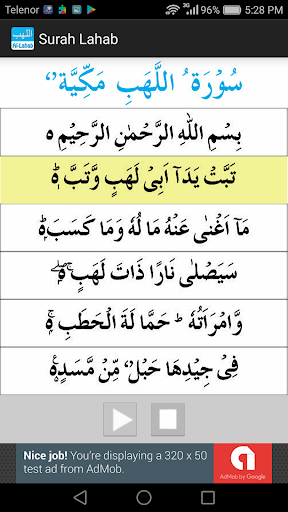 Telenor 5:28 PM
اللهب
Al-Lahab
Surah Lahab
سُوْرَۃُ اللَّهَبِ مَكِّيَّة
بِسْمِ اللهِ الرَّحْمٰنِ الرَّحِيْمِ ٥
تَبَّتْ يَدَآ اَبِىْ لَهَبٍ وَّتَبَّ ؕ
مَاۤ اَغْنٰى عَنْهُ مَا لُهٗ وَمَا كَسَبَ ؕ
سَيَصْلٰى نَارًا ذَاتَ لَهَبٍ ۚۖ
وَّامْرَاَتُهٗ ؕ حَمَّا لَةَ الْحَطَبِ ۚ
فِىْ جِيْدِهَا حَبْلٌ مِّنْ مَّسَدٍ
Nice job! You're displaying a 320 x 50
test ad from AdMob.
AdMob by Google